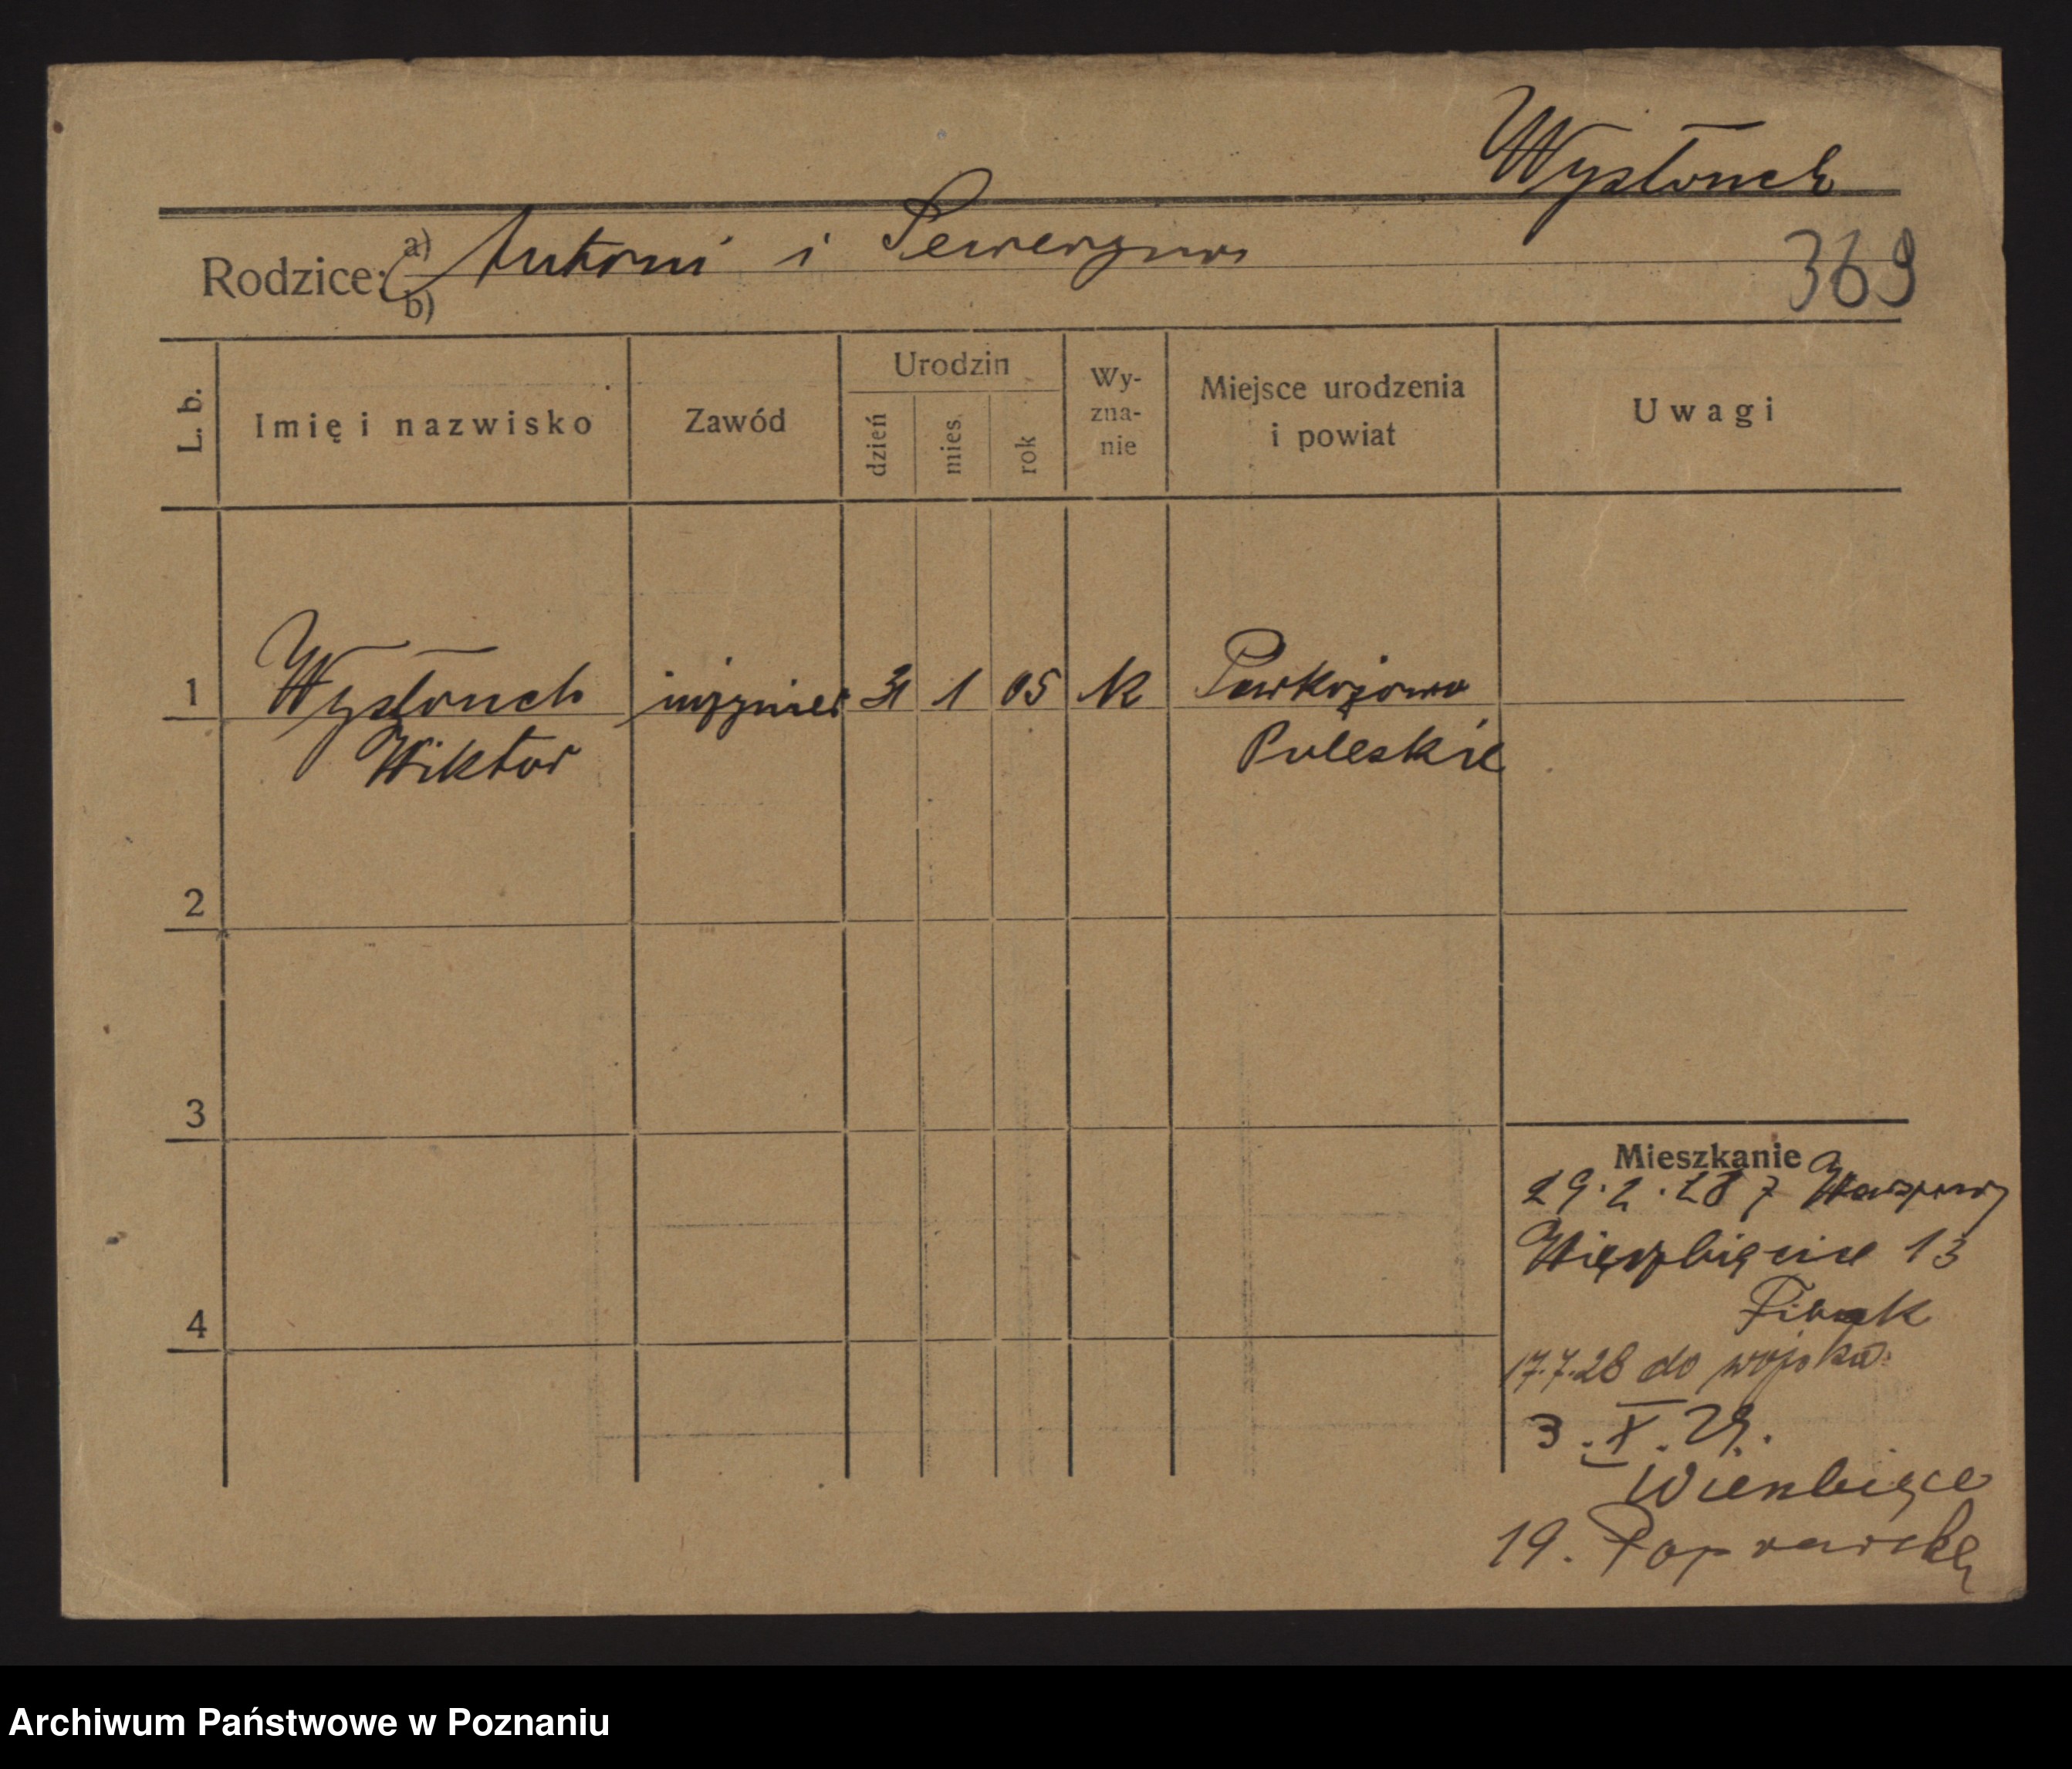 Wysłouch
Rodzice: a) Antoni i Seweryna
b)
369
L. b.
Imię i nazwisko
Zawód
Urodzin
dzień
mies.
rok
Wy-
zna-
nie
Miejsce urodzenia
i powiat
Uwagi
1 Wysłouch inżynier 31 1 05 k
Wiktor Poleskie
2
3
4
Mieszkanie
29.2.28 z Warszawy
Wierzbięcice 13
17.7.28 do wojska
3.X.29.
Wierzbięce
19.
Archiwum Państwowe w Poznaniu